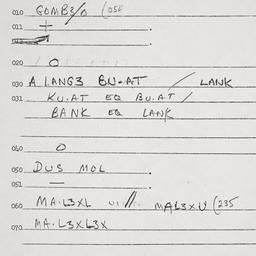 010 GOMB3/O (054
011 + .
012
020 O
030 A LANG3 BU.AT / LANK
031 KU.AT EQ BU.AT /
BANK EQ LANK
040 O
050 DUS MOL .
051 — .
060 MA.L3XL VI // MAL3XU (235
070 MA.L3XL3X